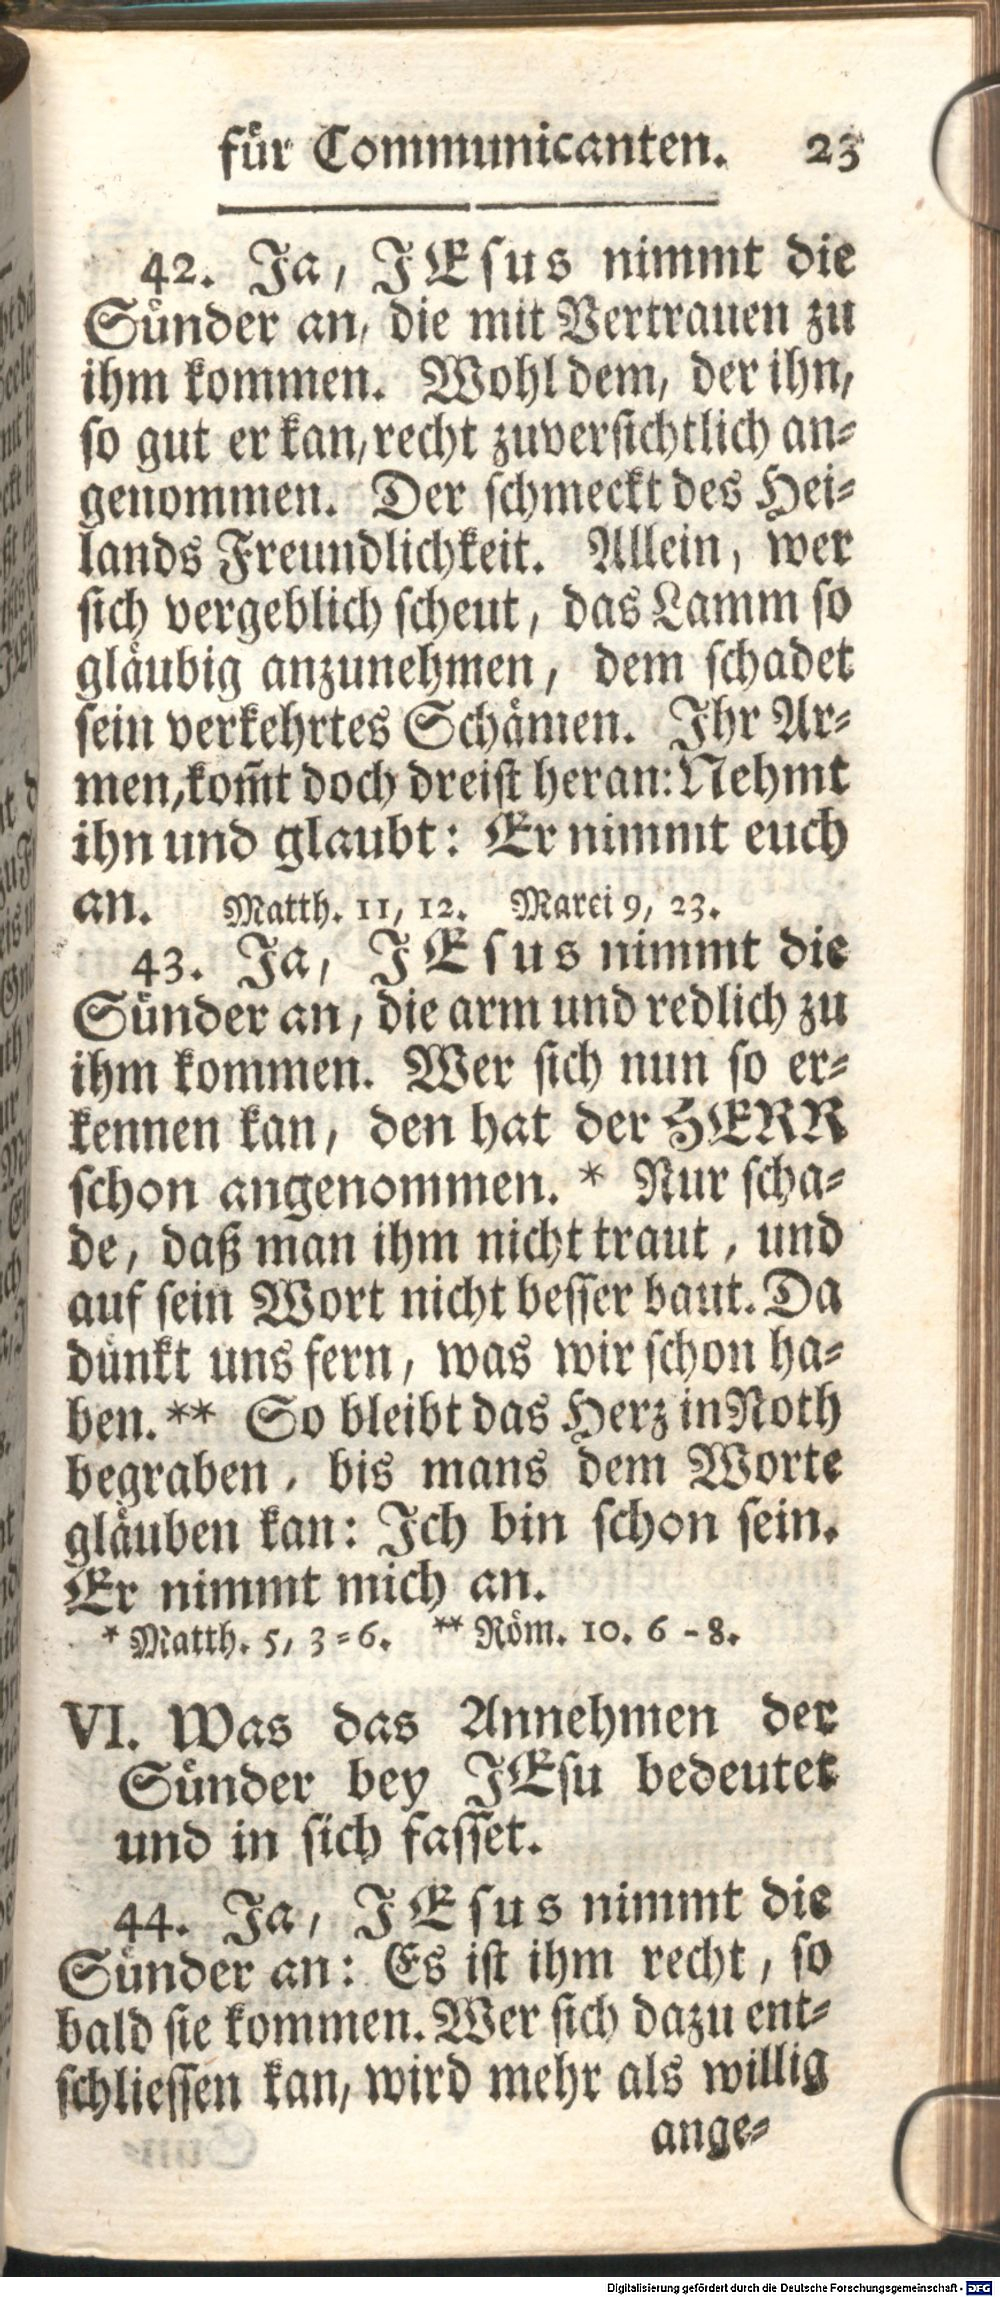 für Communicanten. 23
42. Ja, JEsus nimmt die
Sünder an, die mit Vertrauen zu
ihm kommen. Wohl dem, der ihn,
so gut er kan, recht zuversichtlich an-
genommen. Der schmeckt des Hei-
lands Freundlichkeit. Allein, wer
sich vergeblich scheut, das Lamm so
gläubig anzunehmen, dem schadet
sein verkehrtes Schämen. Ihr Ar-
men, kom̃t doch dreist heran: Nehmt
ihn und glaubt: Er nimmt euch
an. Matth. 11, 12. Marci 9, 23.
43. Ja, JEsus nimmt die
Sünder an, die arm und redlich zu
ihm kommen. Wer sich nun so er-
kennen kan, den hat der HERR
schon angenommen. * Nur scha-
de, daß man ihm nicht traut, und
auf sein Wort nicht besser baut. Da
dünkt uns fern, was wir schon ha-
ben. ** So bleibt das Herz in Noth
begraben, bis mans dem Worte
gläuben kan: Ich bin schon sein.
Er nimmt mich an.
* Matth. 5, 3-6. ** Röm. 10. 6-8.
VI. Was das Annehmen der
Sünder bey JEsu bedeutet
und in sich fasset.
44. Ja, JEsus nimmt die
Sünder an: Es ist ihm recht, so
bald sie kommen. Wer sich dazu ent-
schliessen kan, wird mehr als willig
ange-
Digitalisierung gefördert durch die Deutsche Forschungsgemeinschaft - DFG